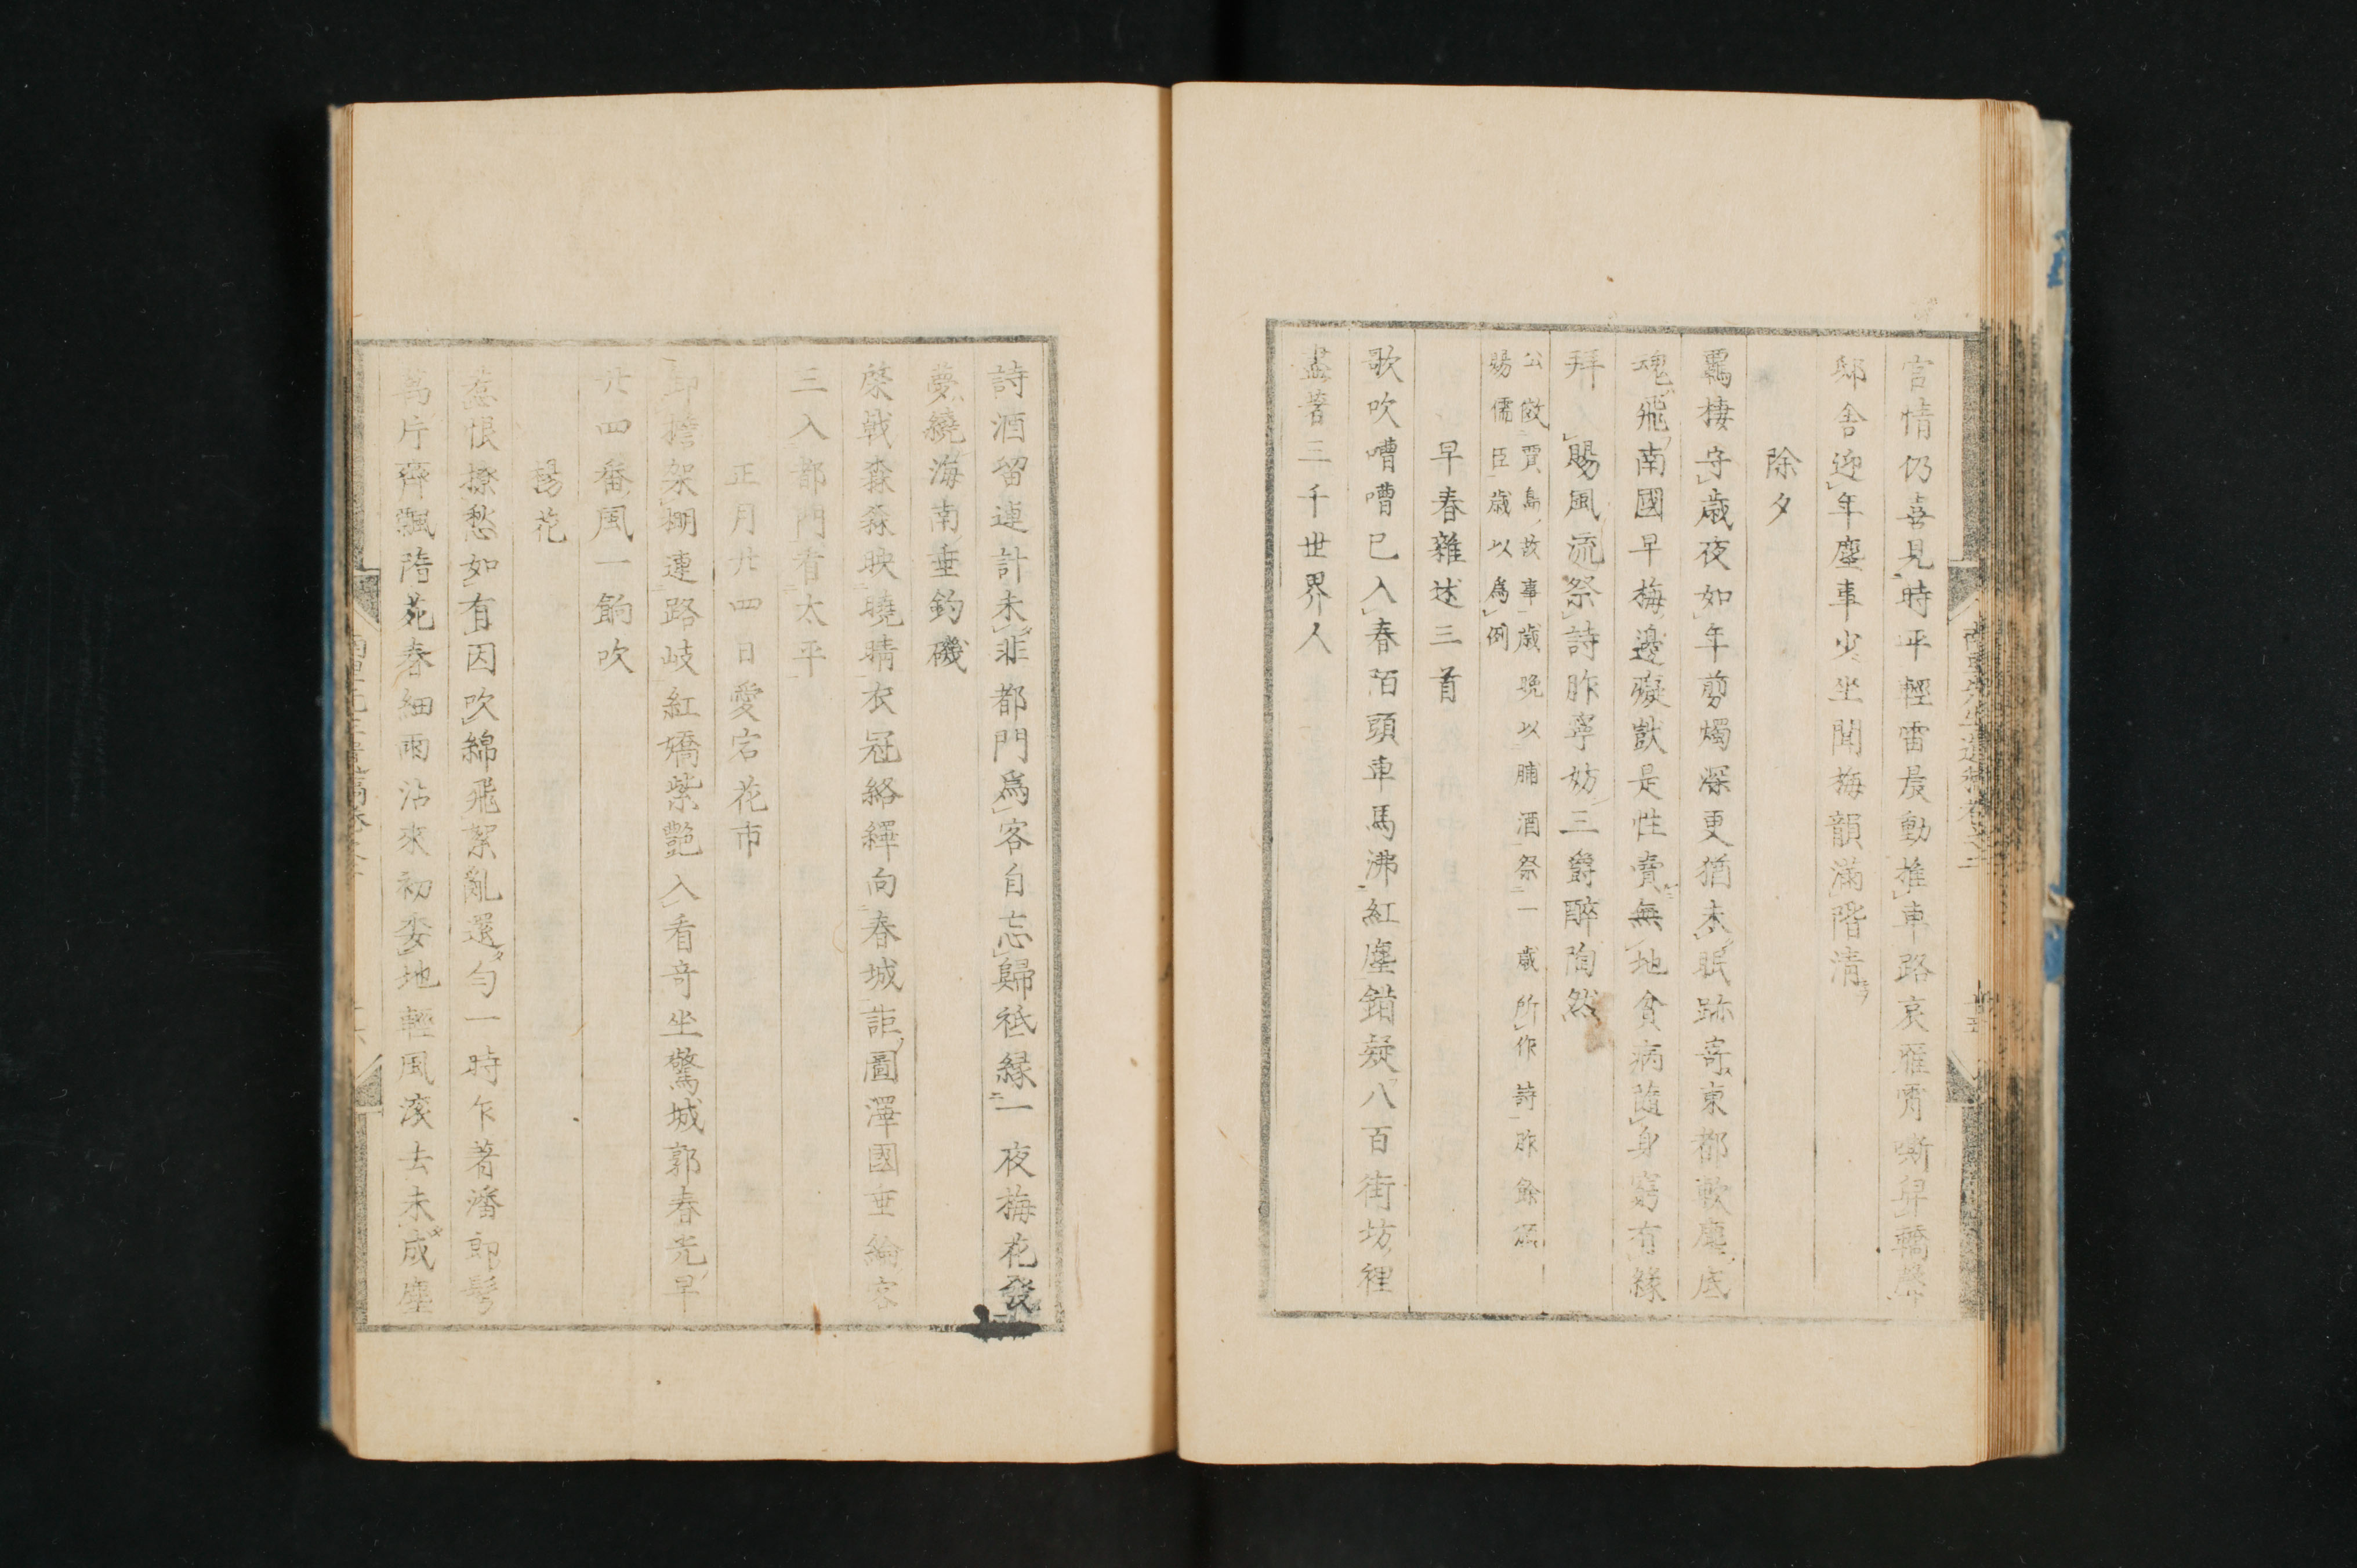 官情仍喜見時平輕雷晨動推車路哀雁宵嘶舁轎
邸舍迎年塵事少坐聞梅韻滿階清
除夕
羈棲守歲夜如年剪燭深更猶未眠跡寄東都軟塵底
魂飛南國早梅邊癡獃是性賣無地貧病隨身窮有緣
拜賜風流祭詩胙寧妨三爵醉陶然
公倣賈島故事歲晚以脯酒祭一歲所作詩胙餘
賜儒臣歲以為例
早春雜述三首
歌吹嘈嘈已入春陌頭車馬沸紅塵錯疑八百街坊裡
盡著三千世界人
詩酒留連計未非都門爲客自忘歸祗緣一夜梅花發
夢繞海南垂釣磯
棨戟森森映曉晴衣冠絡繹向春城詎圖澤國垂綸客
三入都門看太平
正月廿四日愛宕花市
卸擔架棚連路岐紅嬌紫艷入看奇坐驚城郭春光早
廿四番風一餉吹
楊花
惹恨撩愁如有因吹綿飛絮亂還勻一時乍著潘郎鬢
萬片齊飄隋苑春細雨沾來初委地輕風滾去未成塵